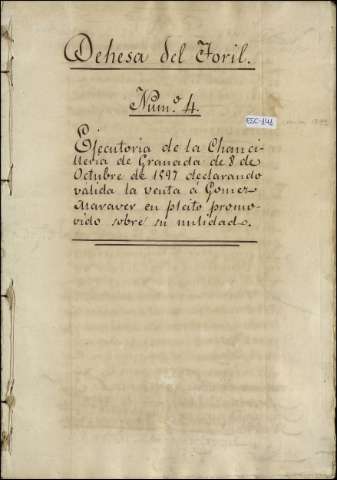 Dehesa del Toril.
Num.º 4.
ESC-141
Ejecutoria de la Chanci-
lleria de Granada de 8 de
Octubre de 1597 declarando
valida la venta á Gomez
Maraver en pleito promo-
vido sobre su nulidad.